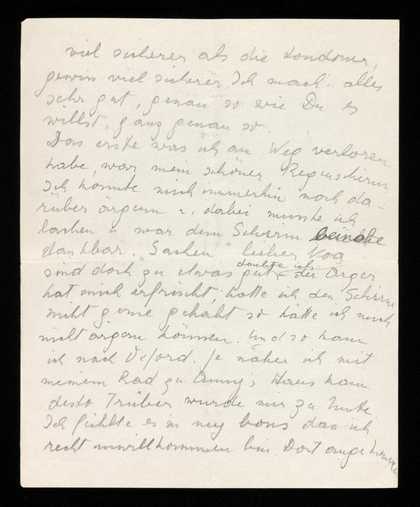 viel sicherer als die Londoner,
gewiss viel sicherer. Ich mach alles
sehr gut, genau so wie Du es
willst, ganz genau so.
Das erste was ich am Weg verloren
habe, war mein schöner Regenschirm
Ich konnte mich immerhin noch da-
rüber ärgern u. dabei musste ich
lachen u war dem Schirm beinahe
dankbar. Sachen lieber
sind doch zu etwas gut dachte ich der Ärger
hat mich erfrischt; hätte ich den Schirm
nicht gerne gehabt so hätte ich mich
nicht ärgern können. Und so kam
ich nach Oxford. Je näher ich mit
meinem Rad zu Annys Haus kam
desto Trüber wurde mir zu Mute
Ich fühlte es in my bons dass ich
recht unwillkommen bin. Dort angekommen